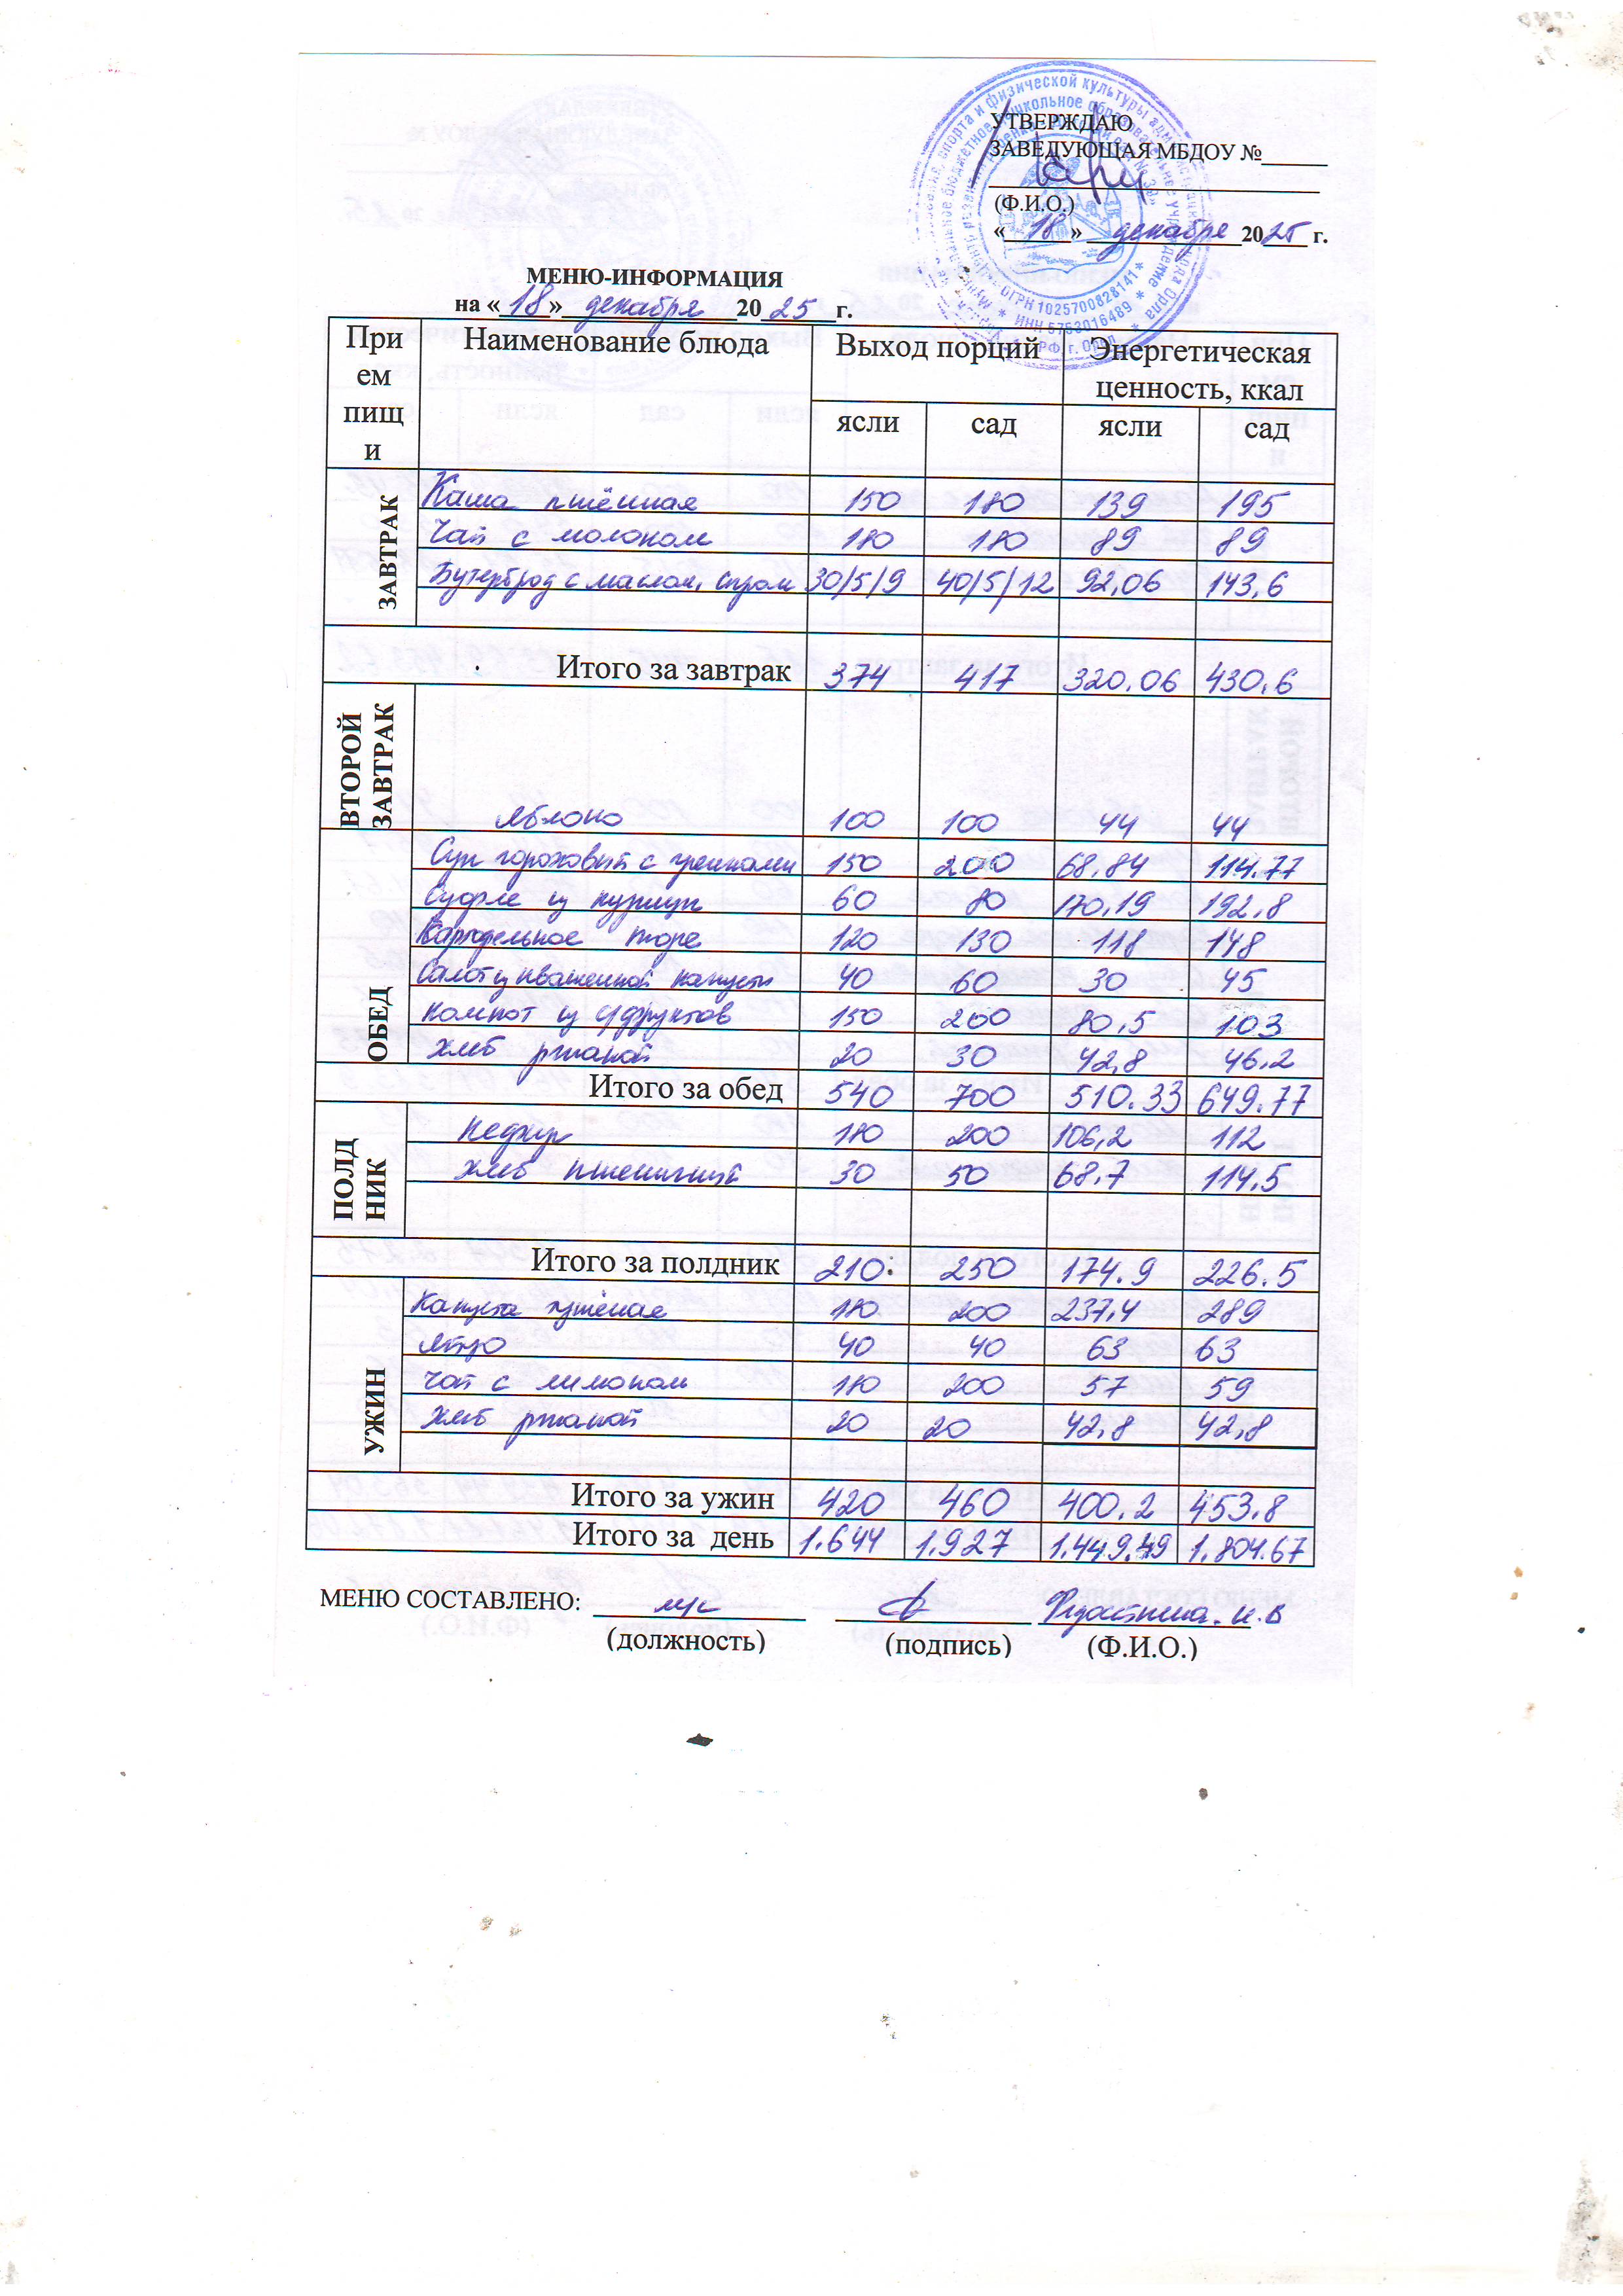 УТВЕРЖДАЮ
ЗАВЕДУЮЩАЯ МБДОУ №
(Ф.И.О.)
«18» декабря 2025 г.
ОГРН 1025700828141 *
ИНН 5753016489 *
МЕНЮ-ИНФОРМАЦИЯ
на «18» декабря 2025 г.
При ем пищ и Наименование блюда Выход порций Энергетическая ценность, ккал
ясли сад ясли сад
ЗАВТРАК
Каша пшённая 150 180 139 195
Чай с молоком 180 180 89 89
Бутерброд с маслом, сыром 30/5/9 40/5/12 92,06 143,6
Итого за завтрак 374 417 320.06 430.6
ВТОРОЙ ЗАВТРАК
Яблоко 100 100 44 44
ОБЕД
Суп гороховый с гренками 150 200 68.84 114.77
Суфле из курицы 60 80 170,19 192,8
Картофельное пюре 120 130 118 148
Салат из квашенной капусты 40 60 30 45
Компот из с/фруктов 150 200 80,5 103
Хлеб ржаной 20 30 42,8 46.2
Итого за обед 540 700 510.33 649.77
ПОЛД НИК
Кефир 180 200 106,2 112
Хлеб пшеничный 30 50 68.7 114.5
Итого за полдник 210 250 174.9 226.5
УЖИН
Капуста тушёная 180 200 237,4 289
Яйцо 40 40 63 63
Чай с лимоном 180 200 57 59
Хлеб ржаной 20 20 42,8 42,8
Итого за ужин 420 460 400.2 453.8
Итого за день 1.644 1.927 1.449.49 1.804.67
МЕНЮ СОСТАВЛЕНО: м/с
(должность) (подпись) (Ф.И.О.)